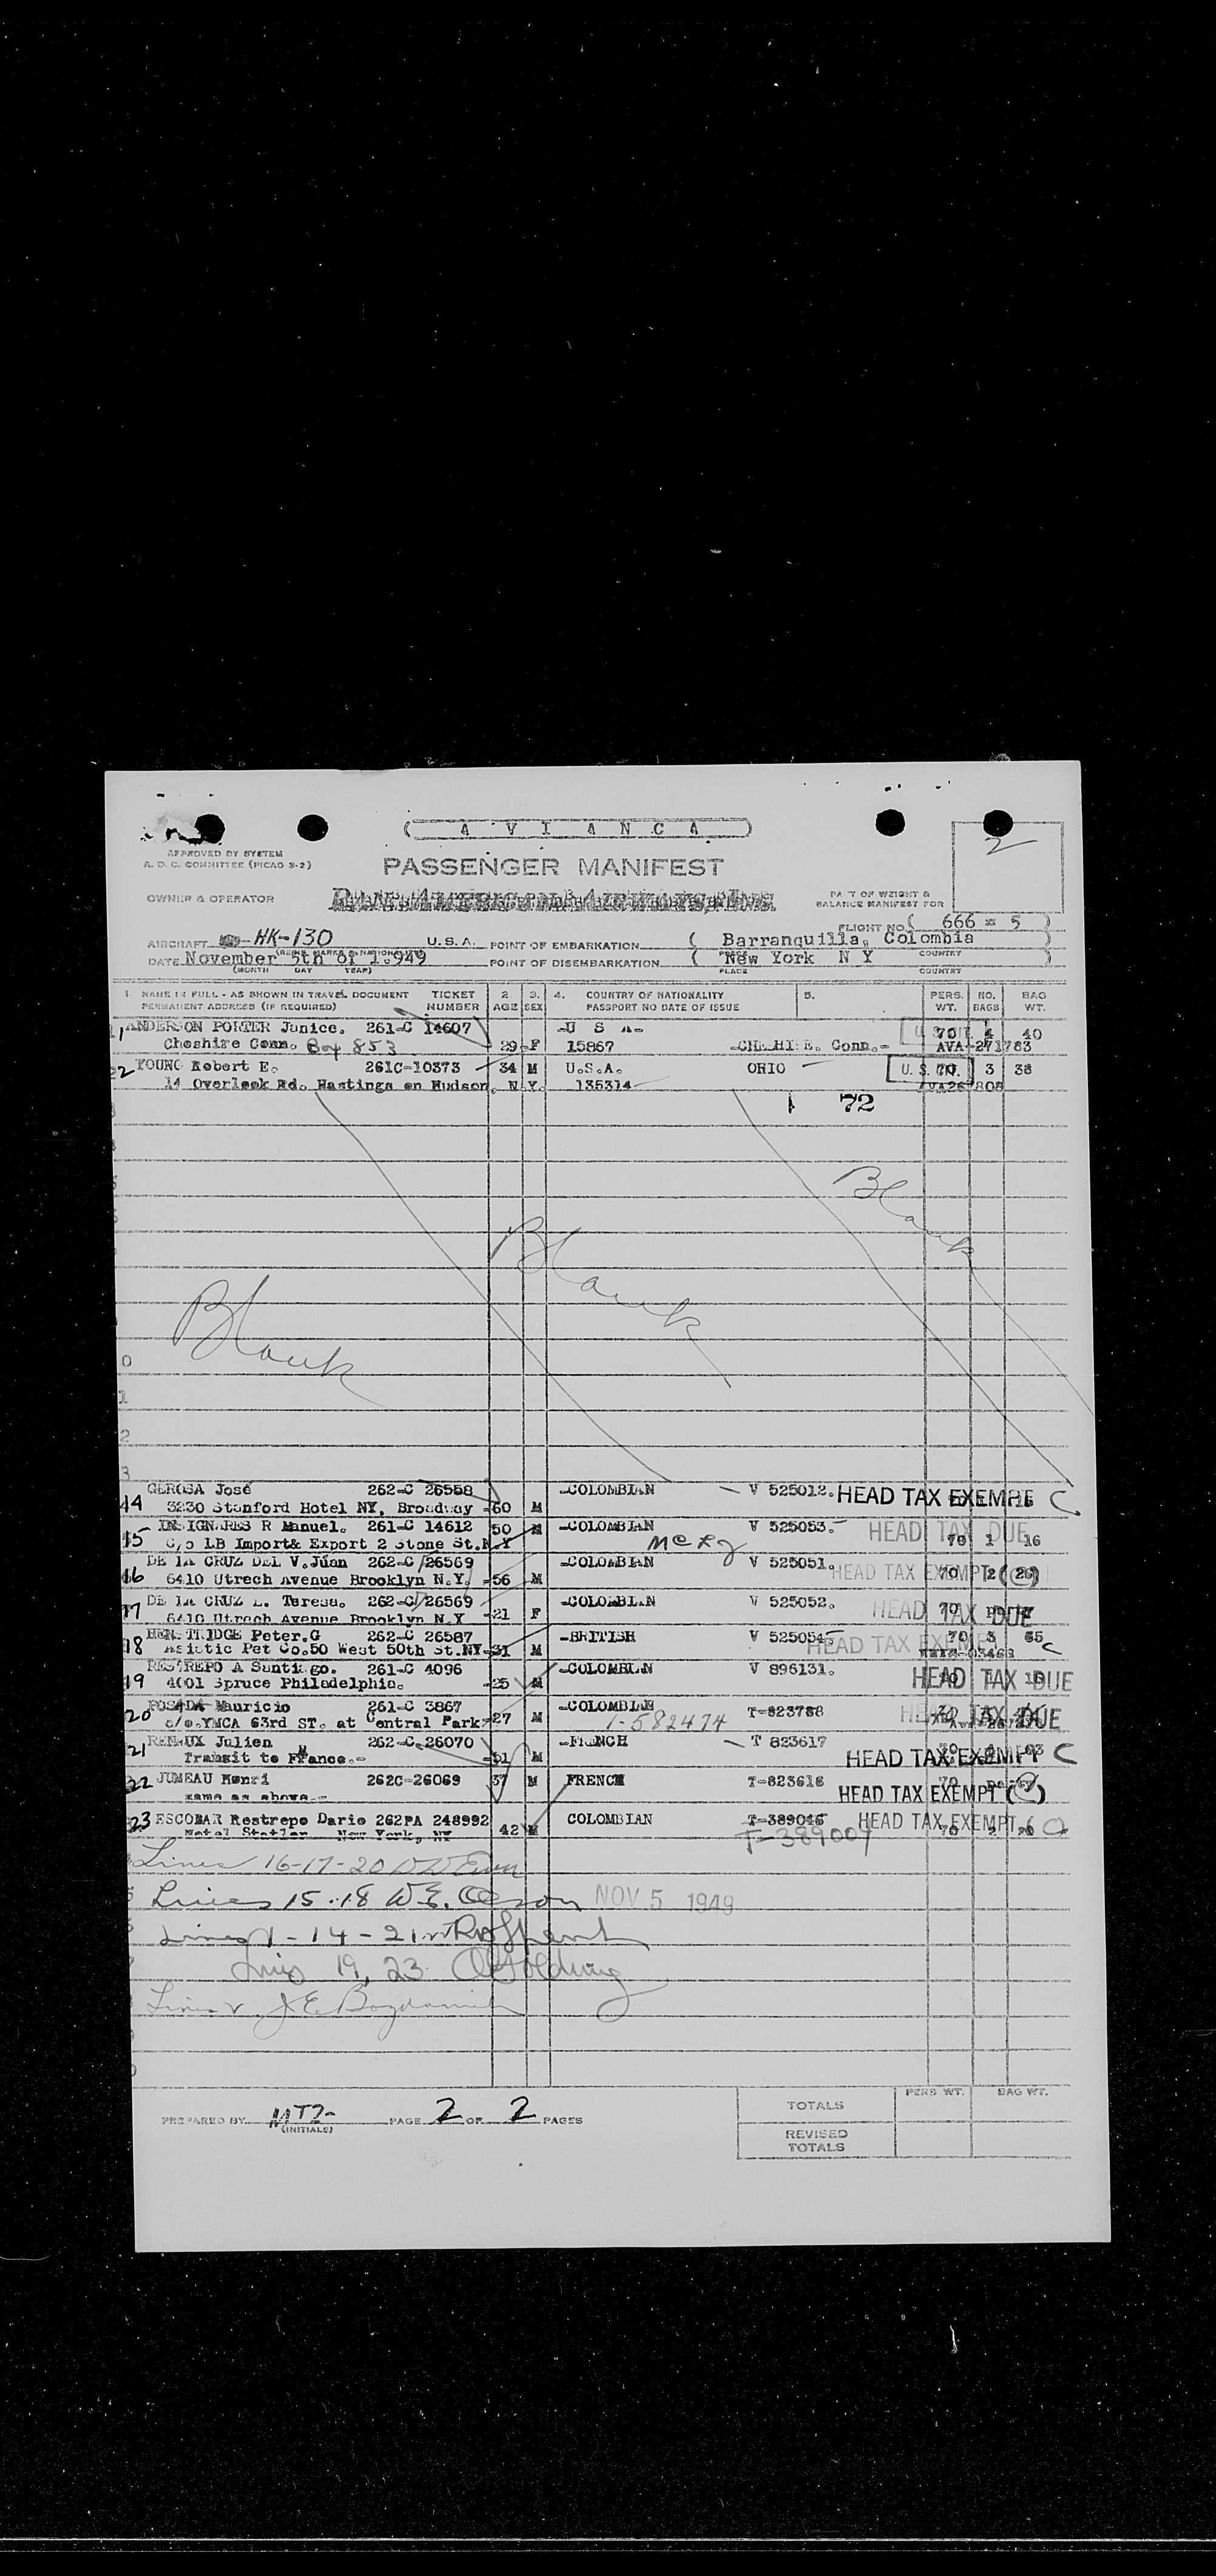 ( A V I A N C A )
2
APPROVED BY SYSTEM
A. D. C. COMMITTEE (PICAO S-2)
PASSENGER MANIFEST
OWNER & OPERATOR
PART OF WEIGHT &
BALANCE MANIFEST FOR
FLIGHT NO. ( 666 = 5 )
AIRCRAFT HK-130 U.S.A. POINT OF EMBARKATION ( Barranquilla, Colombia )
DATE November 5th of 1.949 POINT OF DISEMBARKATION ( New York N Y )
(MONTH DAY YEAR) PLACE COUNTRY
1. NAME IN FULL - AS SHOWN IN TRAVEL DOCUMENT TICKET 2. 3. 4. COUNTRY OF NATIONALITY 5. PERS. NO. BAG
PERMANENT ADDRESS (IF REQUIRED) NUMBER AGE SEX PASSPORT NO DATE OF ISSUE WT. BAGS WT.
1, ANDERSON PORTER Janice. 261-C 14607 -U S A- 70 4 40
Cheshire Conn. Box 853 29-F 15867 Conn.- AVA-271783
2 YOUNG Robert E. 261C-10373 34 M U.S.A. OHIO U.S. CIT. 3 38
14 Overlook Rd. Hastings on Hudson, N.Y. 135314
1 72
Blank
Blank
Blank
0
1
2
3
14 GEROSA José 262-C 26558 -COLOMBIAN V 525012. HEAD TAX EXEMPT C
3230 Stanford Hotel NY, Broadway -60 M
15 INSIGNARES R Manuel. 261-C 14612 50 M -COLOMBIAN V 525053.- HEAD TAX DUE
C/o LB Import& Export 2 Stone St.N.Y 70 1 16
16 DE LA CRUZ DEL V.Júan 262-C 26569 -COLOMBIAN V 525051. HEAD TAX EXEMPT (C)
6410 Utrech Avenue Brooklyn N.Y. -56 M
17 DE LA CRUZ L. Teresa. 262-C 26569 -COLOMBIAN V 525052. HEAD TAX DUE
6410 Utrech Avenue Brooklyn N.Y -21 F
18 Peter.G 262-C 26587 -BRITISH V 525054- 70 3 65
Asiatic Pet Co.50 West 50th St.NY-31 M HEAD TAX EXEMPT C
19 RESTREPO A Santiago. 261-C 4096 -COLOMBIAN V 896131. HEAD TAX DUE
4001 Spruce Philadelphia. -25 M
20 POSADA Mauricio 261-C 3867 -COLOMBIAN T-823788 HEAD TAX DUE
c/o.YMCA 63rd ST. at Central Park-27 M T-582474
21 RENAUX Julien 262-C 26070 -FRENCH T 823617
Transit to France.- -51 M HEAD TAX EXEMPT C
22 JUMEAU Henri 262C-26069 37 M FRENCH T-823618
same as above.- HEAD TAX EXEMPT (C)
23 ESCOBAR Restrepo Dario 262PA 248992 COLOMBIAN T-389046 HEAD TAX EXEMPT (C)
Hotel Statler New York, NY 42 M T-389007 70 2 20
Lines 16-17-20
Lines 15-18 W.E. Olson NOV 5 1949
Lines 1-14-21
Lines 19, 23
Lines J E Bogdanich
PREPARED BY MTZ- PAGE 2 OF 2 PAGES
(INITIALS)
PERS WT. BAG WT.
TOTALS
REVISED
TOTALS